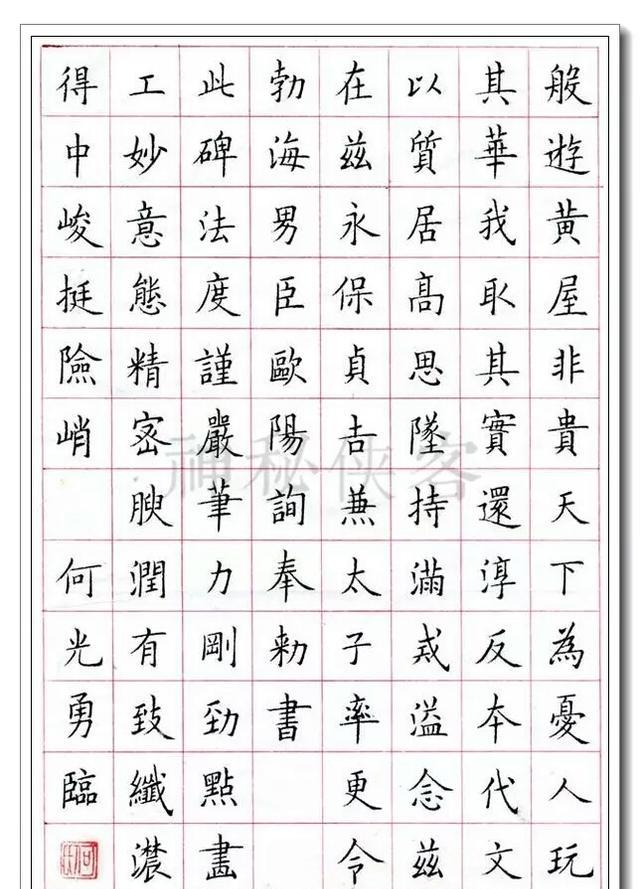 般遊黄屋非貴天下為憂人玩
其華我取其實還淳反本代文
以質居高思墜持滿戒溢念兹
在兹永保貞吉兼太子率更令
勃海男臣歐陽詢奉勅書
此碑法度謹嚴筆力剛勁點畫
工妙意態精密腴潤有致纖濃
得中峻挺險峭 何光勇臨
神秘侠客